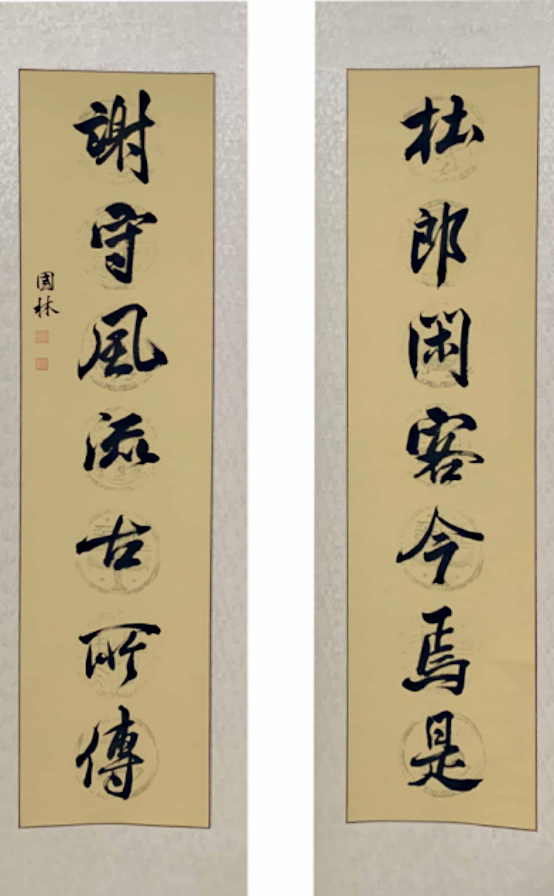 杜郎閑客今焉是
謝守風流古所傳
國林